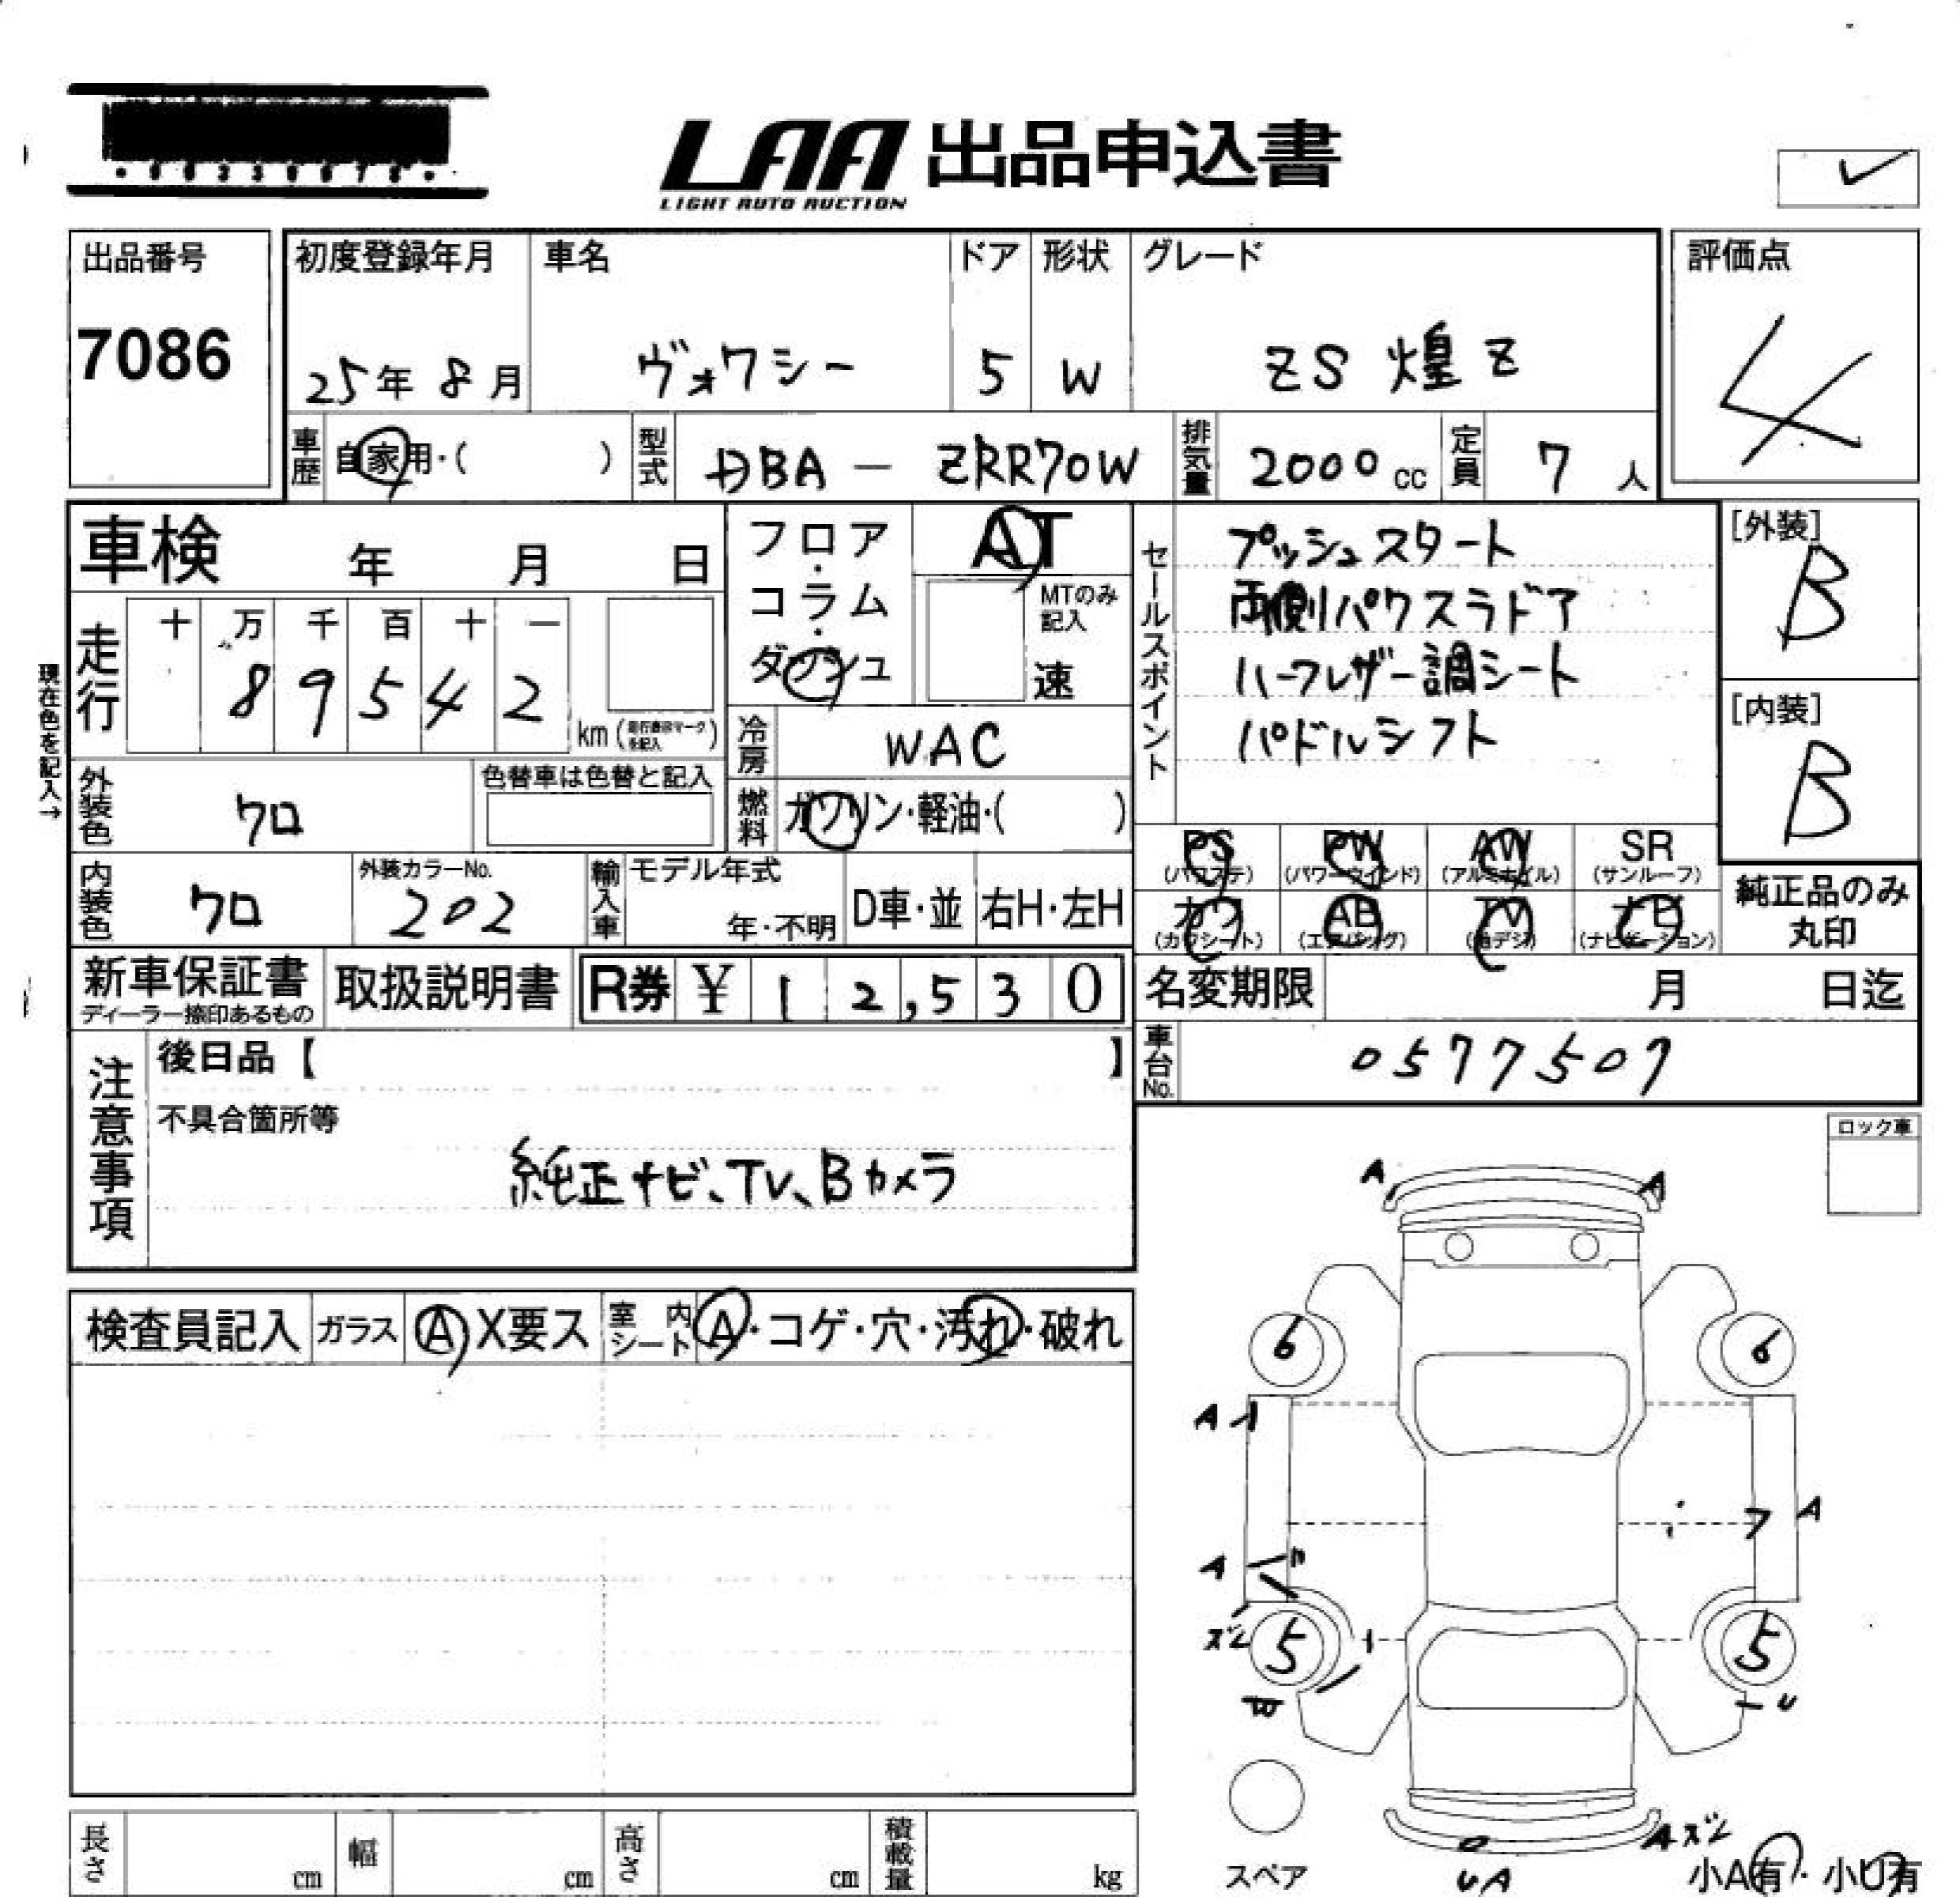 LAA 出品申込書
LIGHT AUTO AUCTION
出品番号
7086
初度登録年月
25年 8月
車名
ヴォクシー
ドア
5
形状
W
グレード
ZS 煌Z
評価点
4
車歴
自家用・( )
型式
DBA - ZRR70W
排気量
2000 cc
定員
7 人
車検 年 月 日
フロア・コラム・ダッシュ
AT
MTのみ記入
速
セールスポイント
プッシュスタート
両側パワスラドア
ハーフレザー調シート
パドルシフト
[外装]
B
[内装]
B
現在色を記入→
走行
十 万 千 百 十 一
8 9 5 4 2
km
冷房
WAC
外装色
クロ
色替車は色替と記入
燃料
ガソリン・軽油・( )
PS (パワステ)
PW (パワーウインド)
AW (アルミホイル)
SR (サンルーフ)
カワ (カワシート)
AB (エアバッグ)
TV (地デジ)
ナビ (ナビゲーション)
純正品のみ
丸印
内装色
クロ
外装カラーNo.
202
輸入車
モデル年式
年・不明
D車・並
右H・左H
新車保証書
ディーラー捺印あるもの
取扱説明書
R券 ¥ 1 2,5 3 0
名変期限 月 日迄
車台No.
0577507
注意事項
後日品【 】
不具合箇所等
純正ナビ、TV、Bカメラ
ロック車
検査員記入
ガラス
A X要ス
室内シート
A・コゲ・穴・汚れ・破れ
A
A
6
6
A
A
A
5
5
スペア
A ズレ
UA
小A有・小U有
長さ cm
幅 cm
高さ cm
積載量 kg